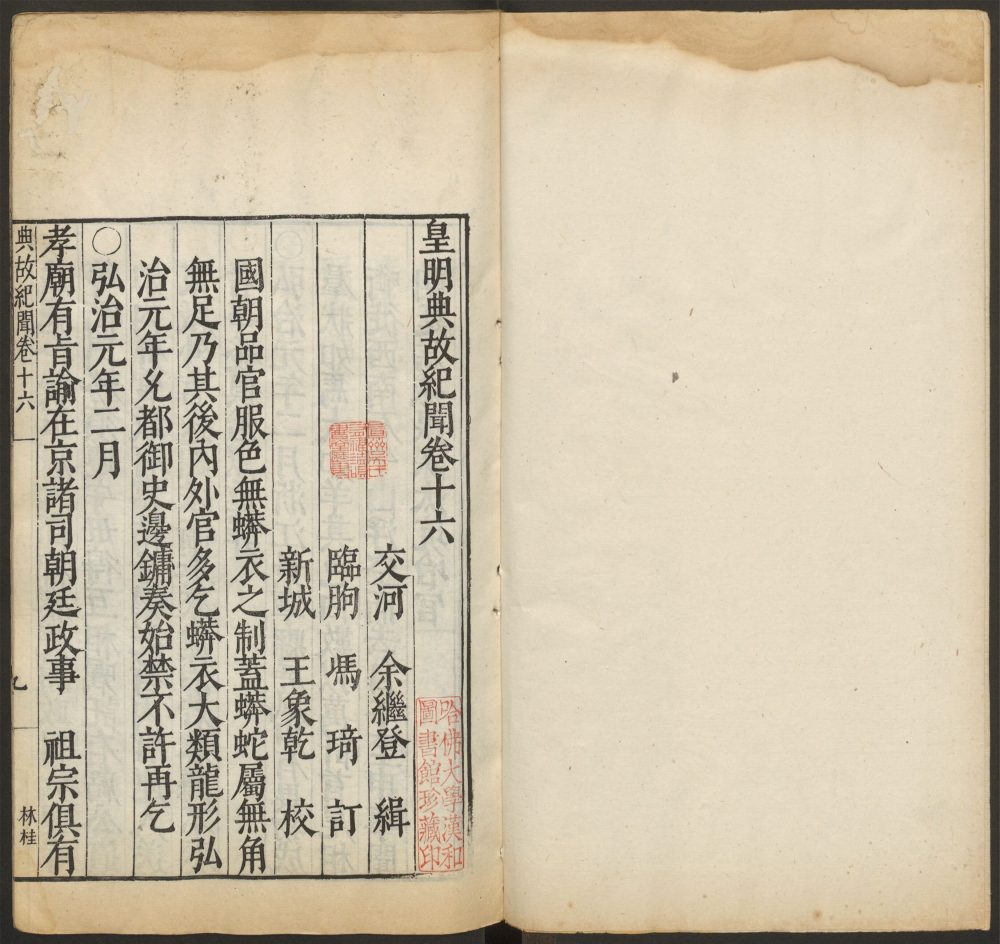 皇明典故紀聞卷十六
交河 余繼登 緝
臨朐 馮琦 訂
新城 王象乾 校
國朝品官服色無蟒衣之制蓋蟒蛇屬無角
無足乃其後內外官多乞蟒衣大類龍形弘
治元年兊都御史邊鏞奏始禁不許再乞
○弘治元年二月
孝廟有旨諭在京諸司朝廷政事 祖宗俱有
典故紀聞卷十六
林桂
哈佛大學漢和
圖書館珍藏印